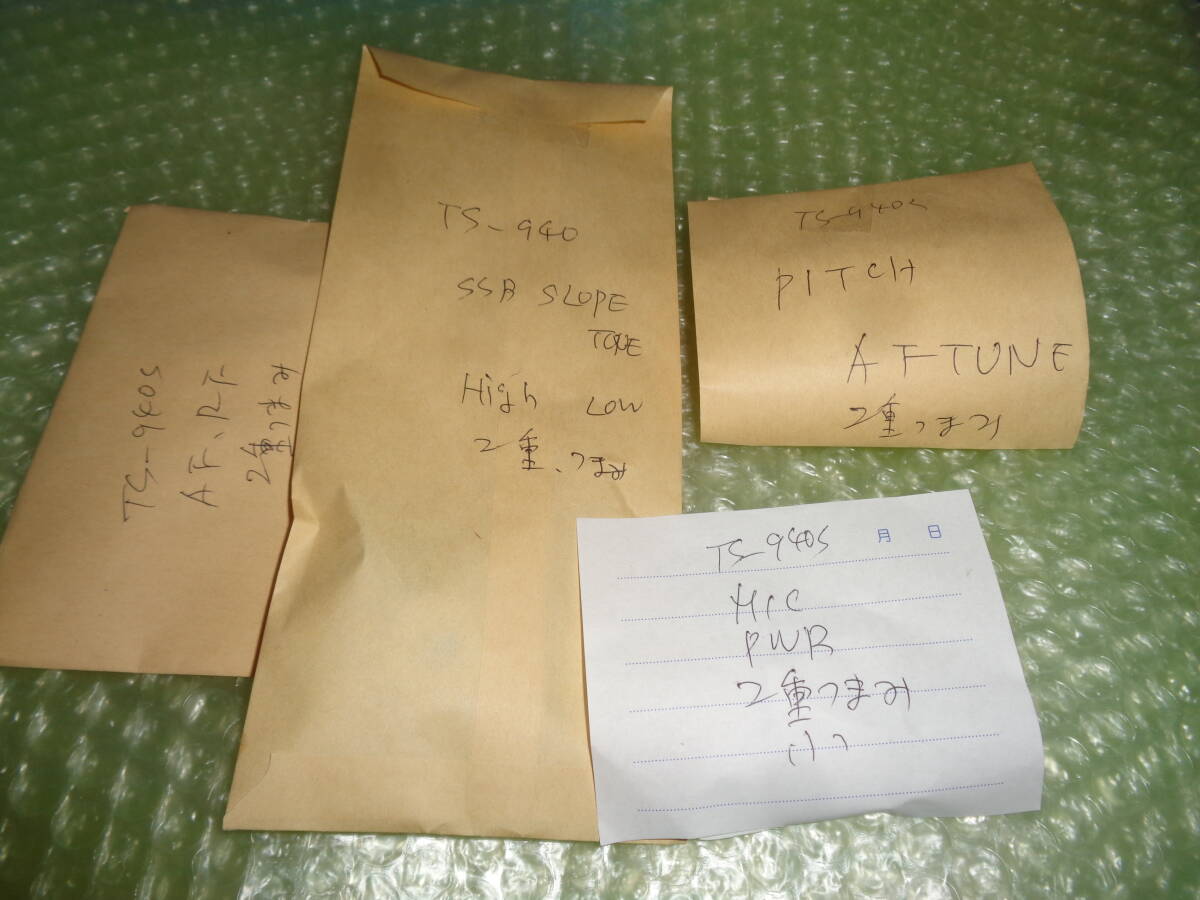 TS-940S
AF、RF
2重つまみ
TS-940
SSB SLOPE
TONE
High LOW
2重、つまみ
TS-940S
PITCH
AF TUNE
2重つまみ
TS-940S 月 日
MIC
PWR
2重つまみ